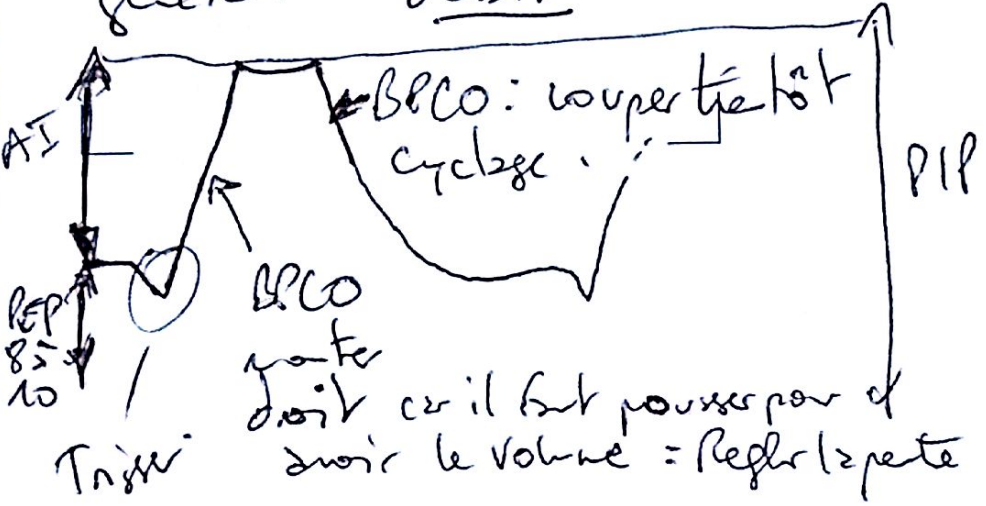 AI
BPCO : couper très tôt
cyclage .
PIP
PEP
85
10
BPCO
monter
droit car il faut pousser pour
avoir le volume = Régler la pente
Trigger